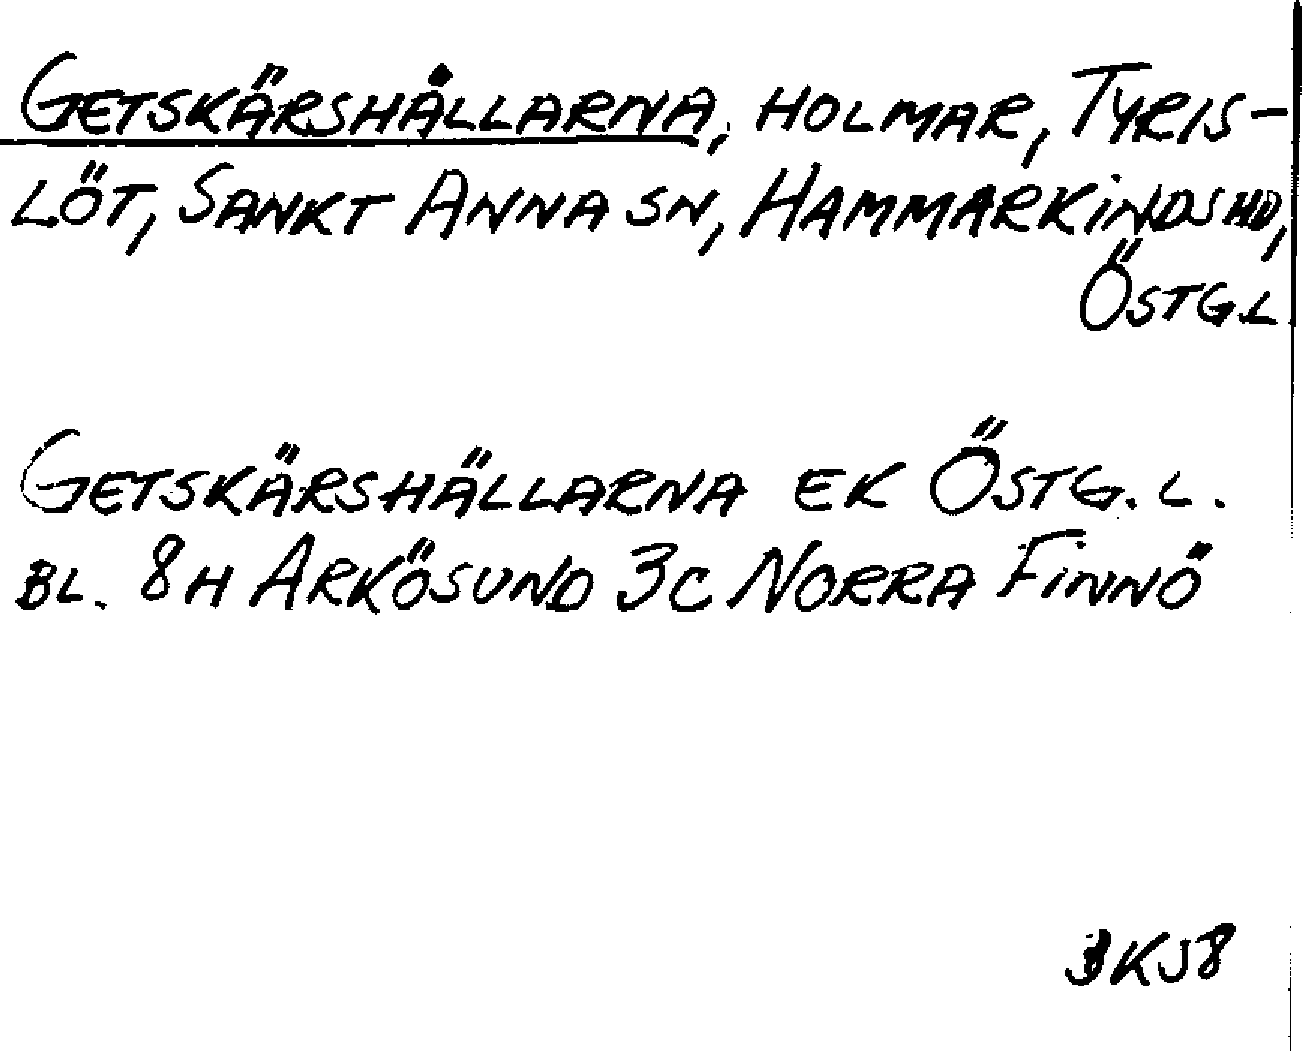 GETSKÄRSHÄLLARNA, HOLMAR, TYRIS-
LÖT, SANKT ANNA SN, HAMMARKINDS HD,
ÖSTG.L
GETSKÄRSHÄLLARNA EK ÖSTG. L.
BL. 8H ARKÖSUND 3C NORRA FINNÖ